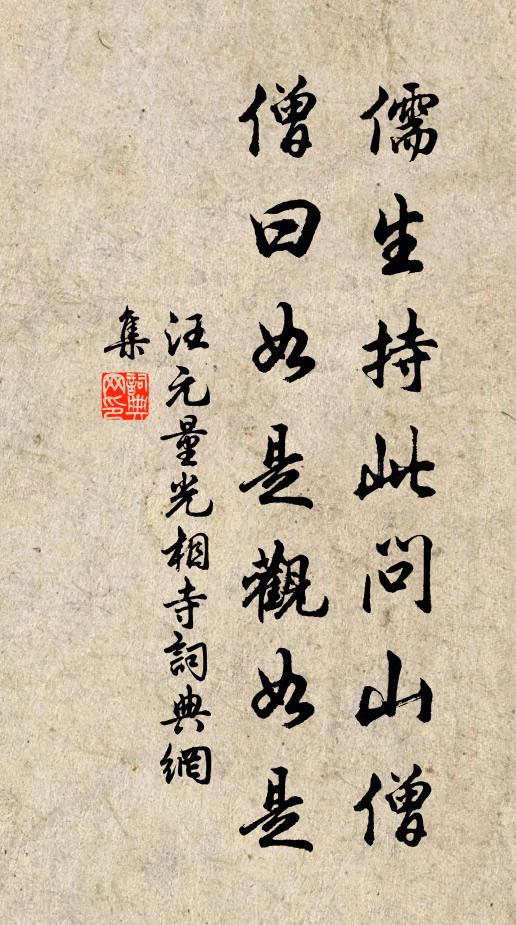 儒生持此問山僧
僧曰如是觀如是
汪元量光相寺詞典網
集
詞典
网印